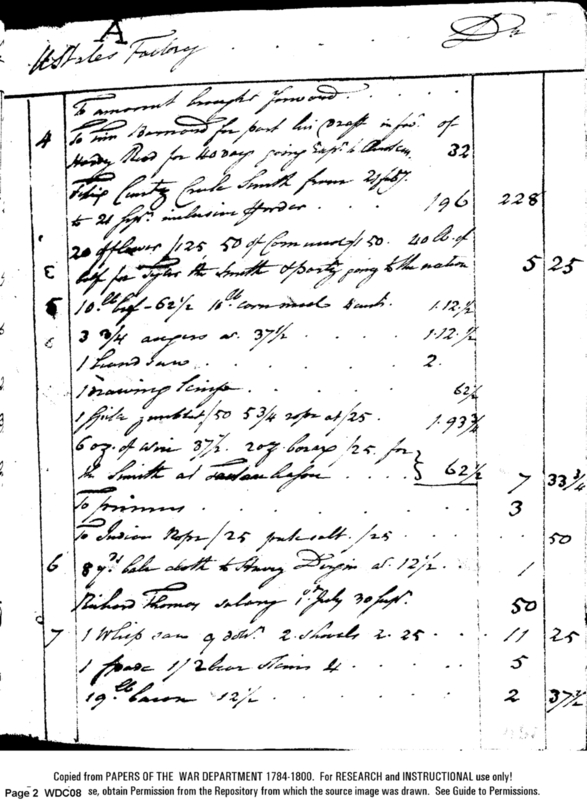 A
UStates Factory . . . . Dr
To amount brought forward . . . .
4 To Tim Barnard for part his Draft in favr. of
Hardy Read for 40 days going Expr. to 32
County Smith from
to 21 Sepr. inclusive 196 228
20 of flower /125 50 of Corn meal /150. 40 lb. of
beef for Tyler the Smith & party going to the nation 5 25
5 10 lb. beef - 62½ 10 lb. corn meal 1.12½
3 3/4 augers at 37½ . . . 1.12½
1 hand saw . . . . . 2.
1 Drawing Knife . . . . 62½
1 gimblet /50 5 3/4 rope at /25. 1.93¾
6 oz. of wire 37½. 2 oz. borax /25. for
the Smith at . . . . } 62½ 7 33¾
To . . . . . 3
To Indian Rope /25 salt. /25 . . . 50
6 8 yds. cloth to Henry at 12½ . . 1
Richard Thomas salary 1st July 30 Sepr. 50
7 1 Whip saw 9 2 shovels 2.25 . . . 11 25
1 spade 1 /2 bear skins 4 . . . . 5
19 lb. bacon 12½ . . . . . 2 37½
Copied from PAPERS OF THE WAR DEPARTMENT 1784-1800. For RESEARCH and INSTRUCTIONAL use only!
Page 2 WDC08 se, obtain Permission from the Repository from which the source image was drawn. See Guide to Permissions.